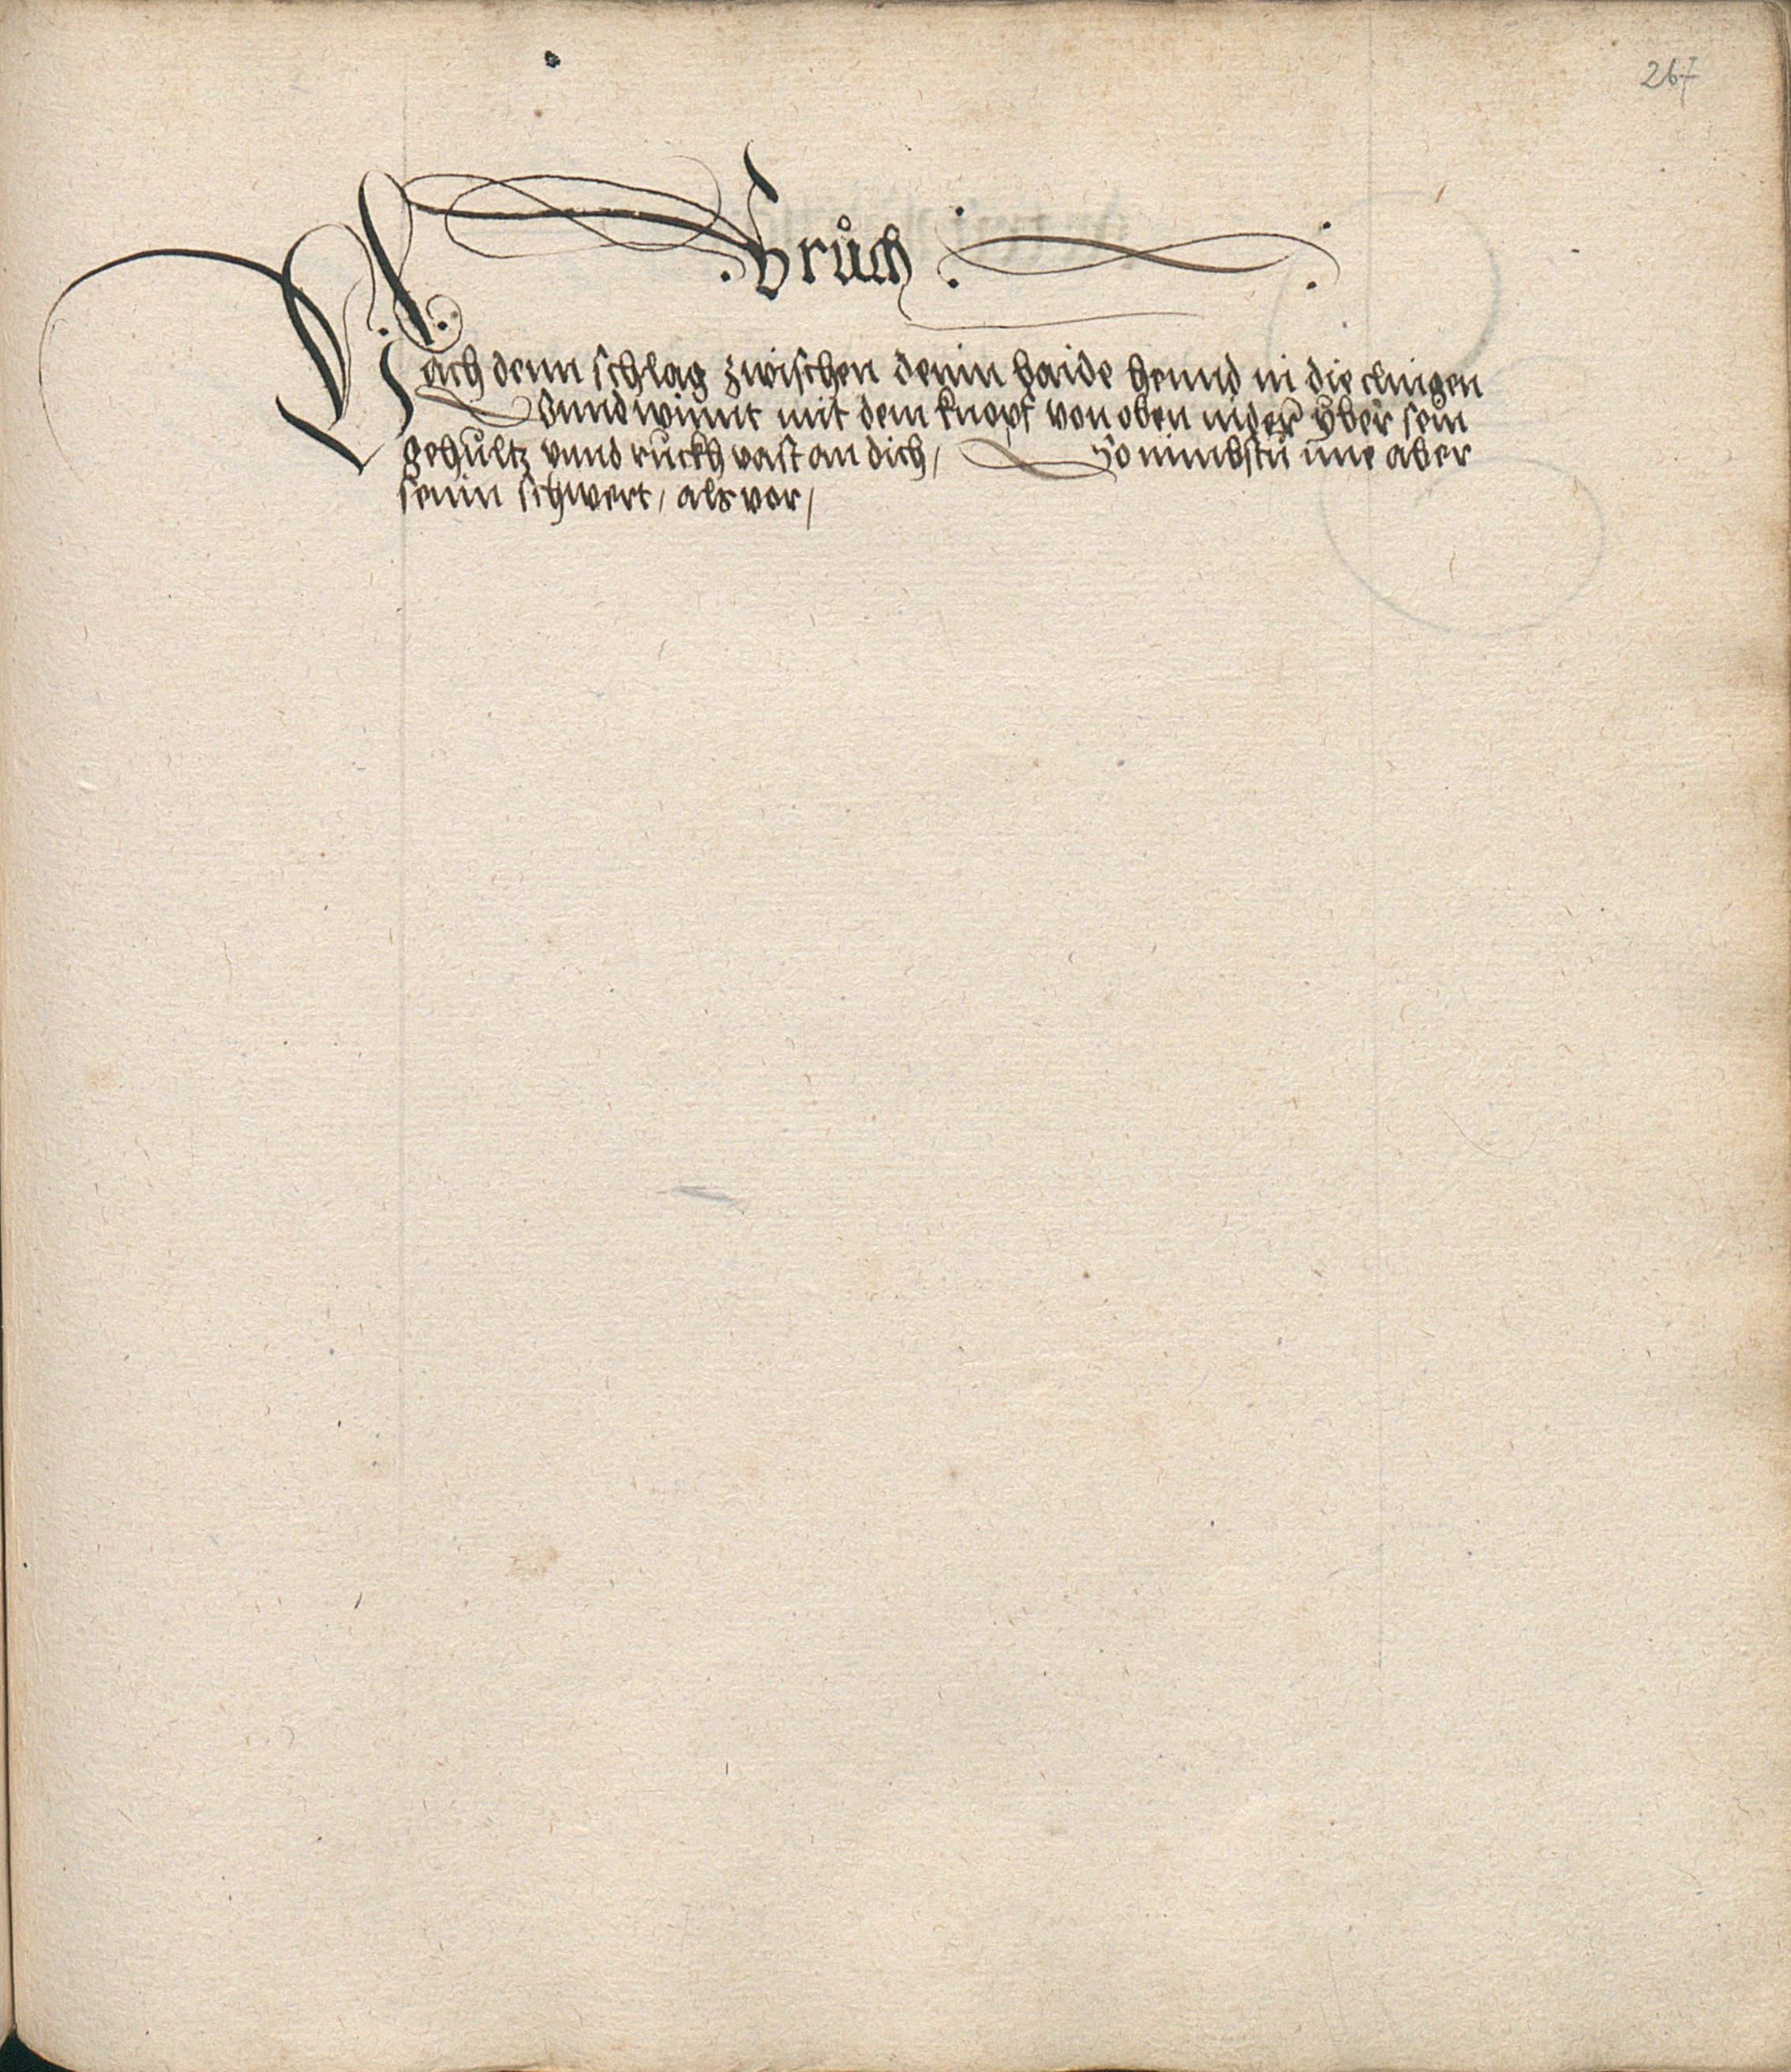 267
Brůch
Nach dem schlag zwischen denin baide hennd in die clingen
Vnnd winnt mit dem knopf von oben nider yber sein
gehultz vnnd ruckh vast an dich / So nimbstu ime aber
senin schwert / als vor /